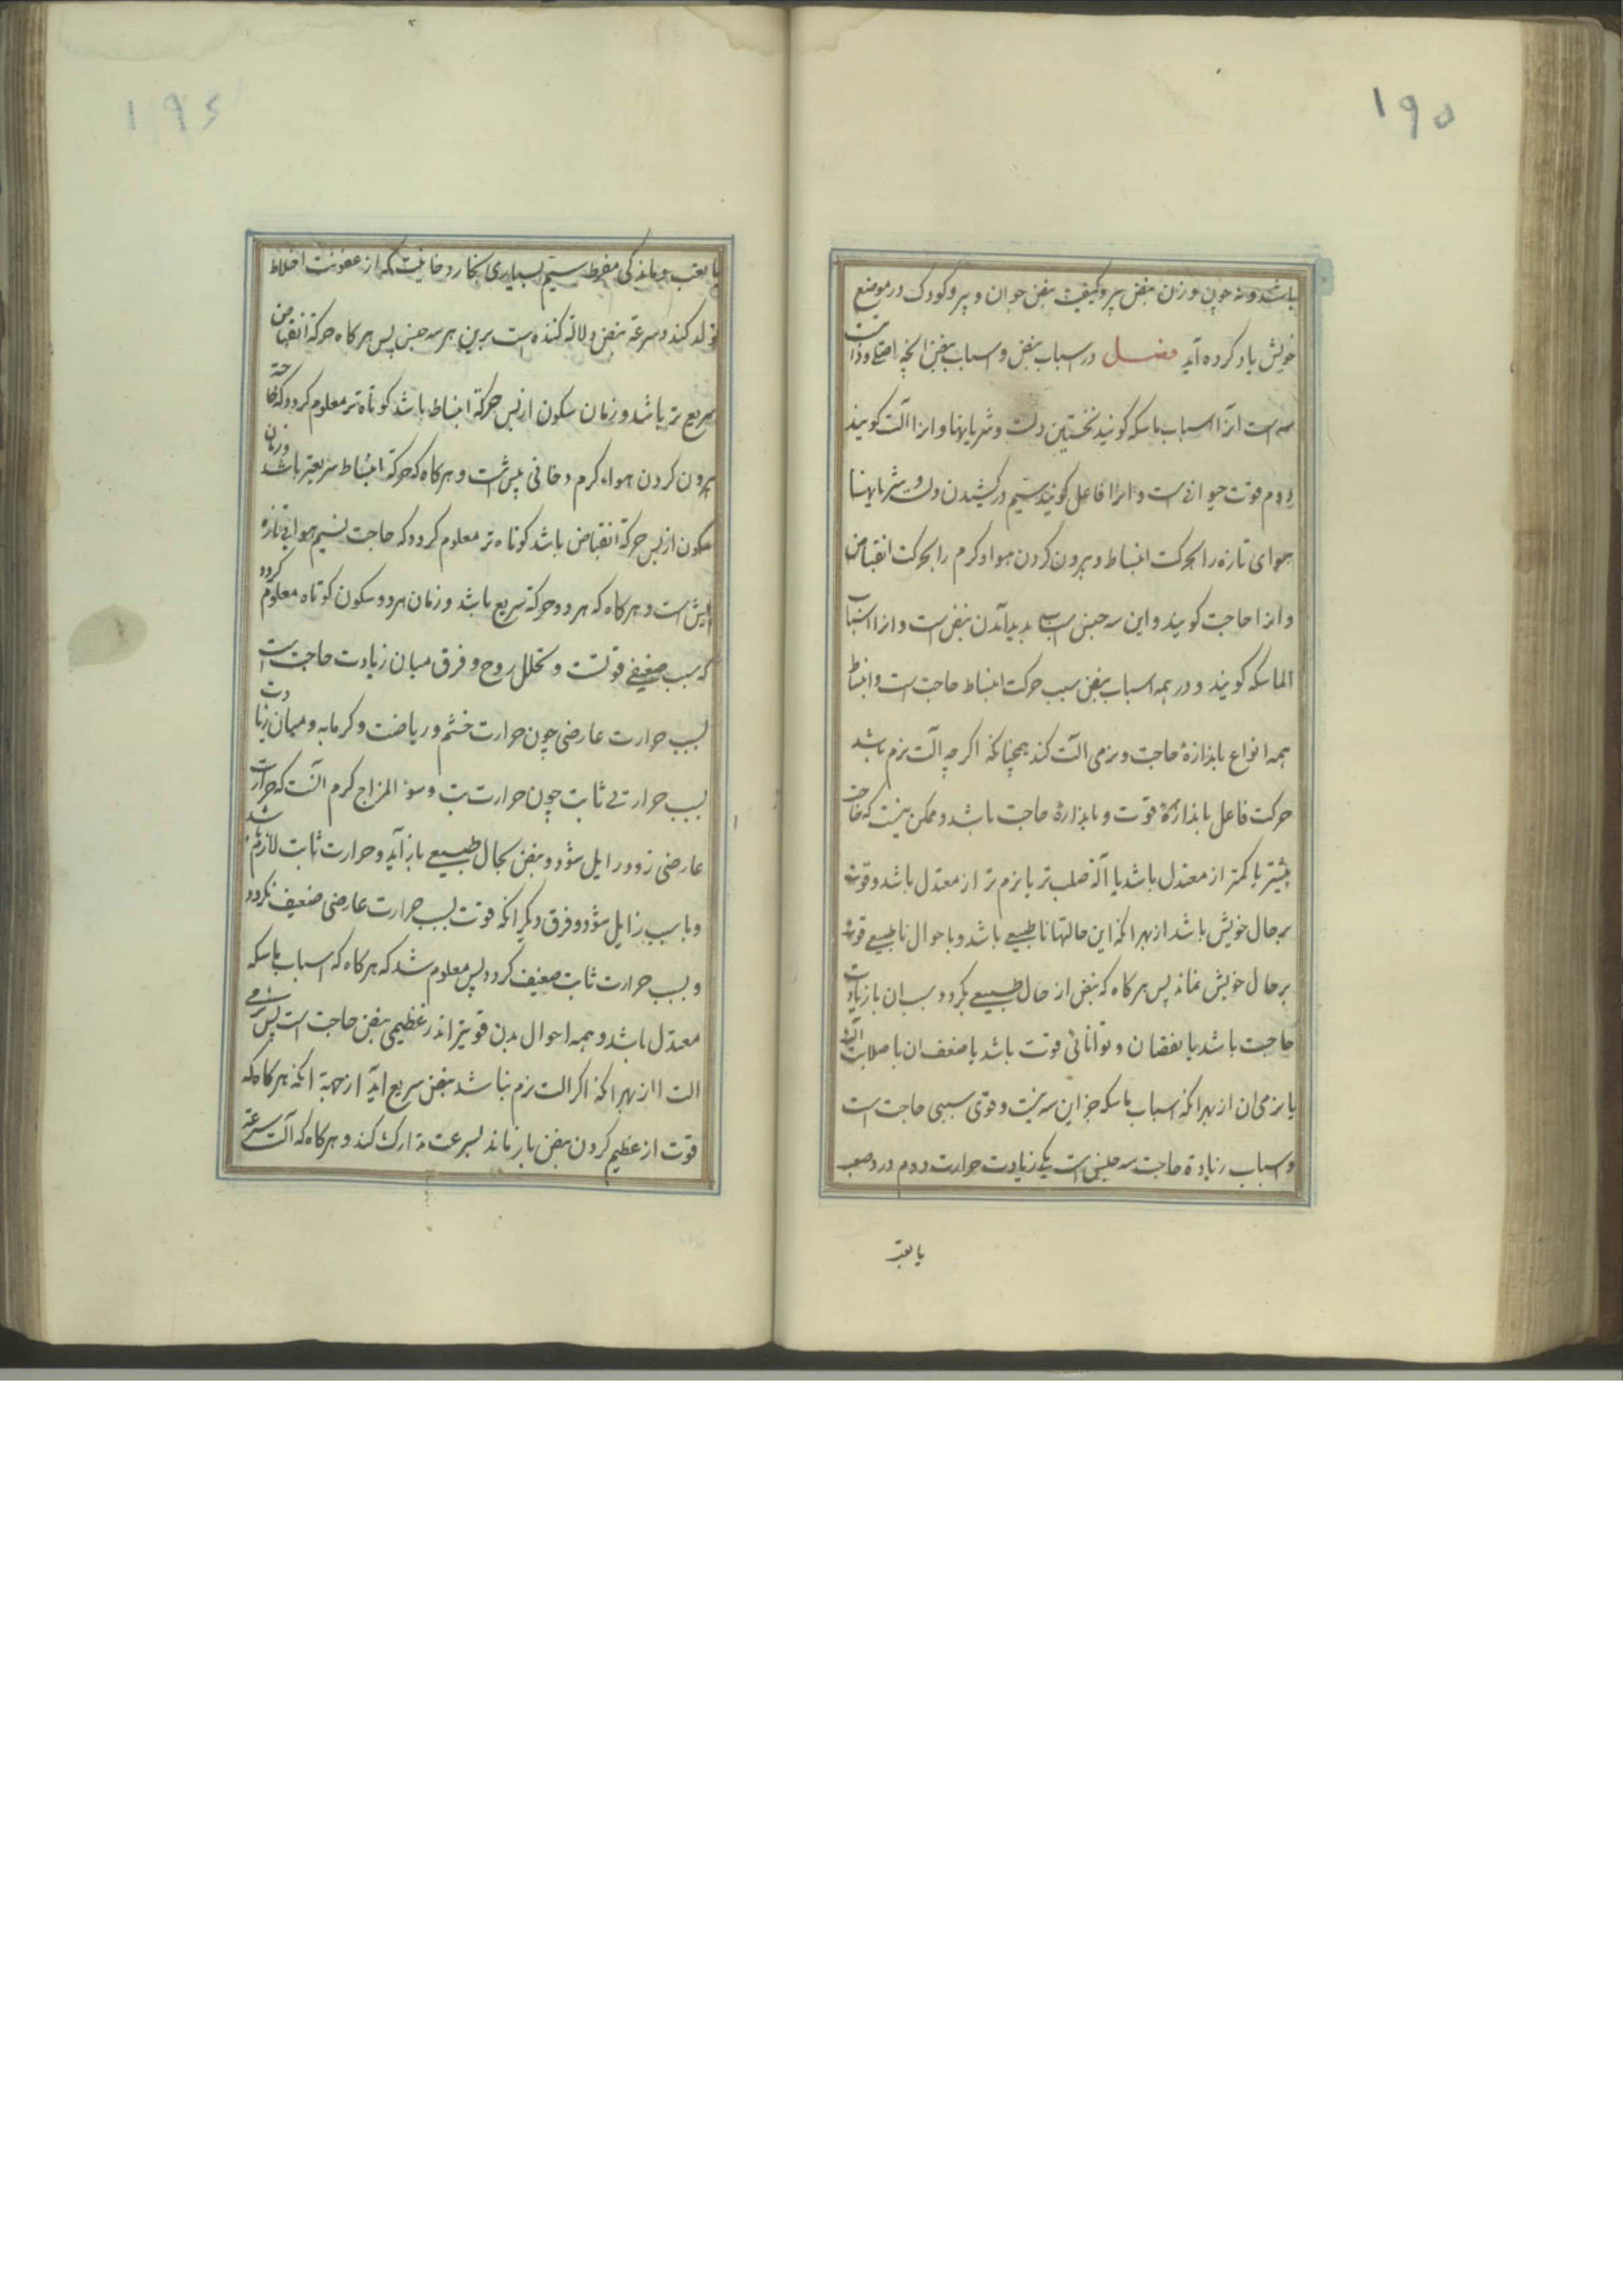 ۱۹۵
باشد و نه چون وزن نبض پیر و کیفیت نبض جوان و پیر و کودک در موضع
خویش یاد کرده آید فصل در اسباب نبض و اسباب نبض انچه اصلی و ذاتیست
سه است انرا اسباب ماسکه کویند نخستین دلست و شریانها و انرا آلت کویند
دوم قوت حیوانی است و انرا فاعل کویند سیم در کشیدن دل و شریانها
هوای تازه را بحرکت انبساط و بیرون کردن هوا و کرم را بحرکت انقباض
و انرا حاجت کویند و این سه جنس اسباب پدید آمدن نبض است و انرا اسباب
الماسکه کویند و در همه اسباب نبض سبب حرکت انبساط حاجت است و انبساط
همه انواع باندازۀ حاجت و نرمی الت کند همچنانکه اکر چه آلت نرم باشد
حرکت فاعل باندازۀ قوت و باندازۀ حاجت باشد و ممکن نیست که حاجت
بیشتر یا کمتر از معتدل باشد یا آلة صلب تر یا نرم تر از معتدل باشد و قوت
بر حال خویش باشد از بهر انکه این حالتها نا طبیعی باشد و با حوال نا طبیعی قوت
بر حال خویش نماند پس هر کاه که نبض از حال طبیعی بکردد سبب ان یا زیادت
حاجت باشد یا نقصان و توانائی قوت باشد یا ضعف ان یا صلابت آلت
یا نرمی ان از بهر انکه اسباب ماسکه جز این سه نیست و قوی سببی حاجت است
و اسباب زیادة حاجت سه جنس است یکی زیادت حرارت دوم درد صعب
یا تعب
۱۹۶
یا تعب و ماندکی مفرط سیم بسیاری بخار دخانیست که از عفونت اخلاط
تولد کند و سرعة نبض دلالة کننده است برین هر سه جنس پس هر کاه حرکة انقباض
سریع تر باشد و زمان سکون از پس حرکة انبساط باشد کوتاه تر معلوم کردد که حاجة
بیرون کردن هواء کرم دخانی بیش است و هر کاه که حرکة انبساط سریعتر باشد و زمان
سکون از پس حرکة انقباض باشد کوتاه تر معلوم کردد که حاجت نسیم هوای تازه
بیش است و هر کاه که هر دو حرکة سریع باشد و زمان هر دو سکون کوتاه معلوم کردد
که سبب ضعیفی قوتست و تحلل روح و فرق میان زیادت حاجت است
بسبب حرارت عارضی چون حرارت خشم و ریاضت و کرمابه و میان زیادت
بسبب حرارتی ثابت چون حرارت تب و سوء المزاج کرم انست که حرارت
عارضی زود زایل شود و نبض بحال طبیعی باز آید و حرارت ثابت لازم باشد
و با سبب زایل شود و فرق دیکر انکه قوت بسبب حرارت عارضی ضعیف نکردد
و بسبب حرارت ثابت ضعیف کردد پس معلوم شد که هر کاه که اسباب ماسکه
معتدل باشد و همه احوال بدن قویتر اندر عظیمی نبض حاجت است پس نرمی
الت از بهر انکه اکر الت نرم نباشد نبض سریع اید از جهة انکه هر کاه که
قوت از عظیم کردن نبض باز ماند بسرعت تدارک کند و هر کاه که آلت سرعة